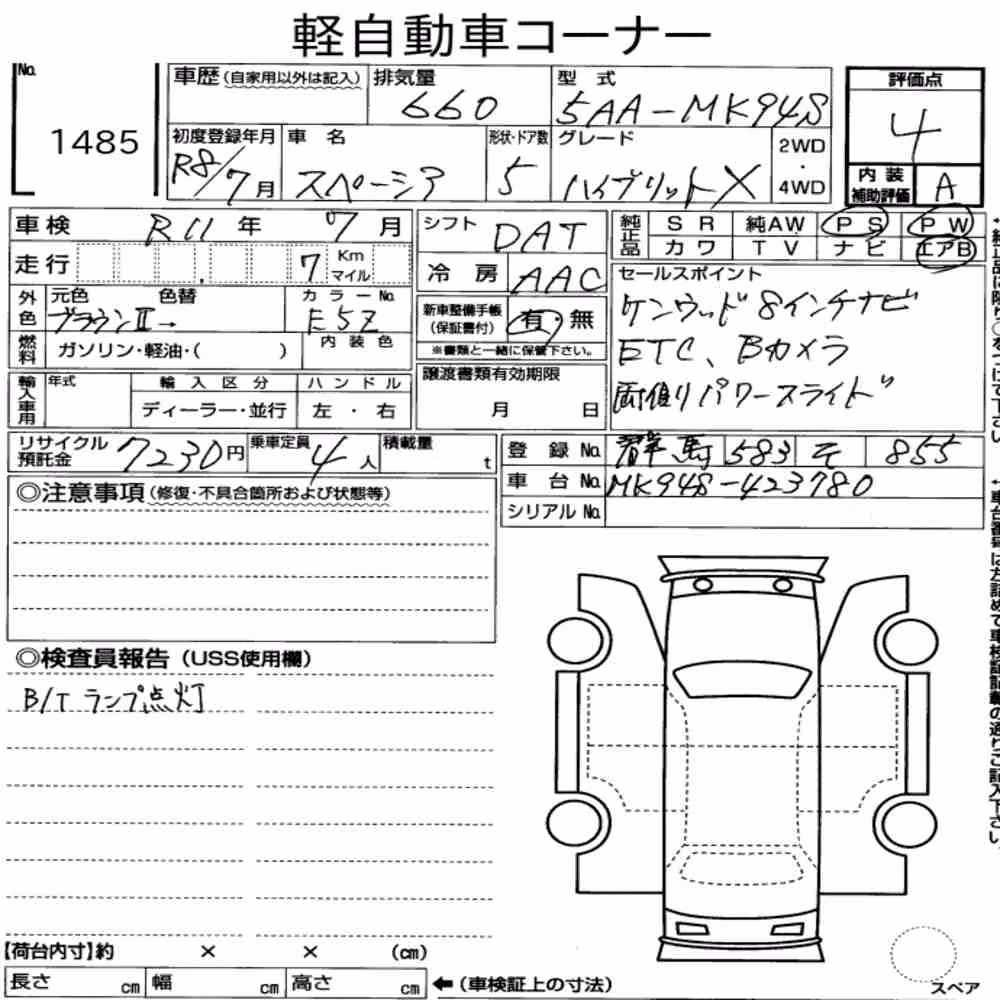 軽自動車コーナー
No. 1485
車歴 (自家用以外は記入) 排気量 型式 評価点
660 5AA-MK94S 4
初度登録年月 車名 形状・ドア数 グレード 2WD・4WD 内装補助評価
R8/7月 スペーシア 5 ハイブリットX A
車検 R11年 7月 シフト DAT 純正品 SR 純AW PS PW
カワ TV ナビ エアB
走行 7 Km マイル 冷房 AAC
セールスポイント
ケンウッド8インチナビ
ETC、Bカメラ
両側りパワースライド
外色 元色 色替 カラーNo.
ブラウンⅡ→ E5Z
新車整備手帳(保証書付) 有・無
※書類と一緒に保管下さい。
燃料 ガソリン・軽油・( ) 内装色
輸入車用 年式 輸入区分 ハンドル
ディーラー・並行 左・右
譲渡書類有効期限
月 日
リサイクル預託金 7230円 乗車定員 4人 積載量 t
登録No. 群馬 583 そ 855
車台No. MK94S-423780
シリアルNo.
◎注意事項 (修復・不具合箇所および状態等)
◎検査員報告 (USS使用欄)
B/T ランプ点灯
【荷台内寸】約 × × (cm)
長さ cm 幅 cm 高さ cm ←(車検証上の寸法)
スペア
↑純正品に限り○をつけて下さい
↑車台番号は左詰めで車検証記載の通りご記入下さい。